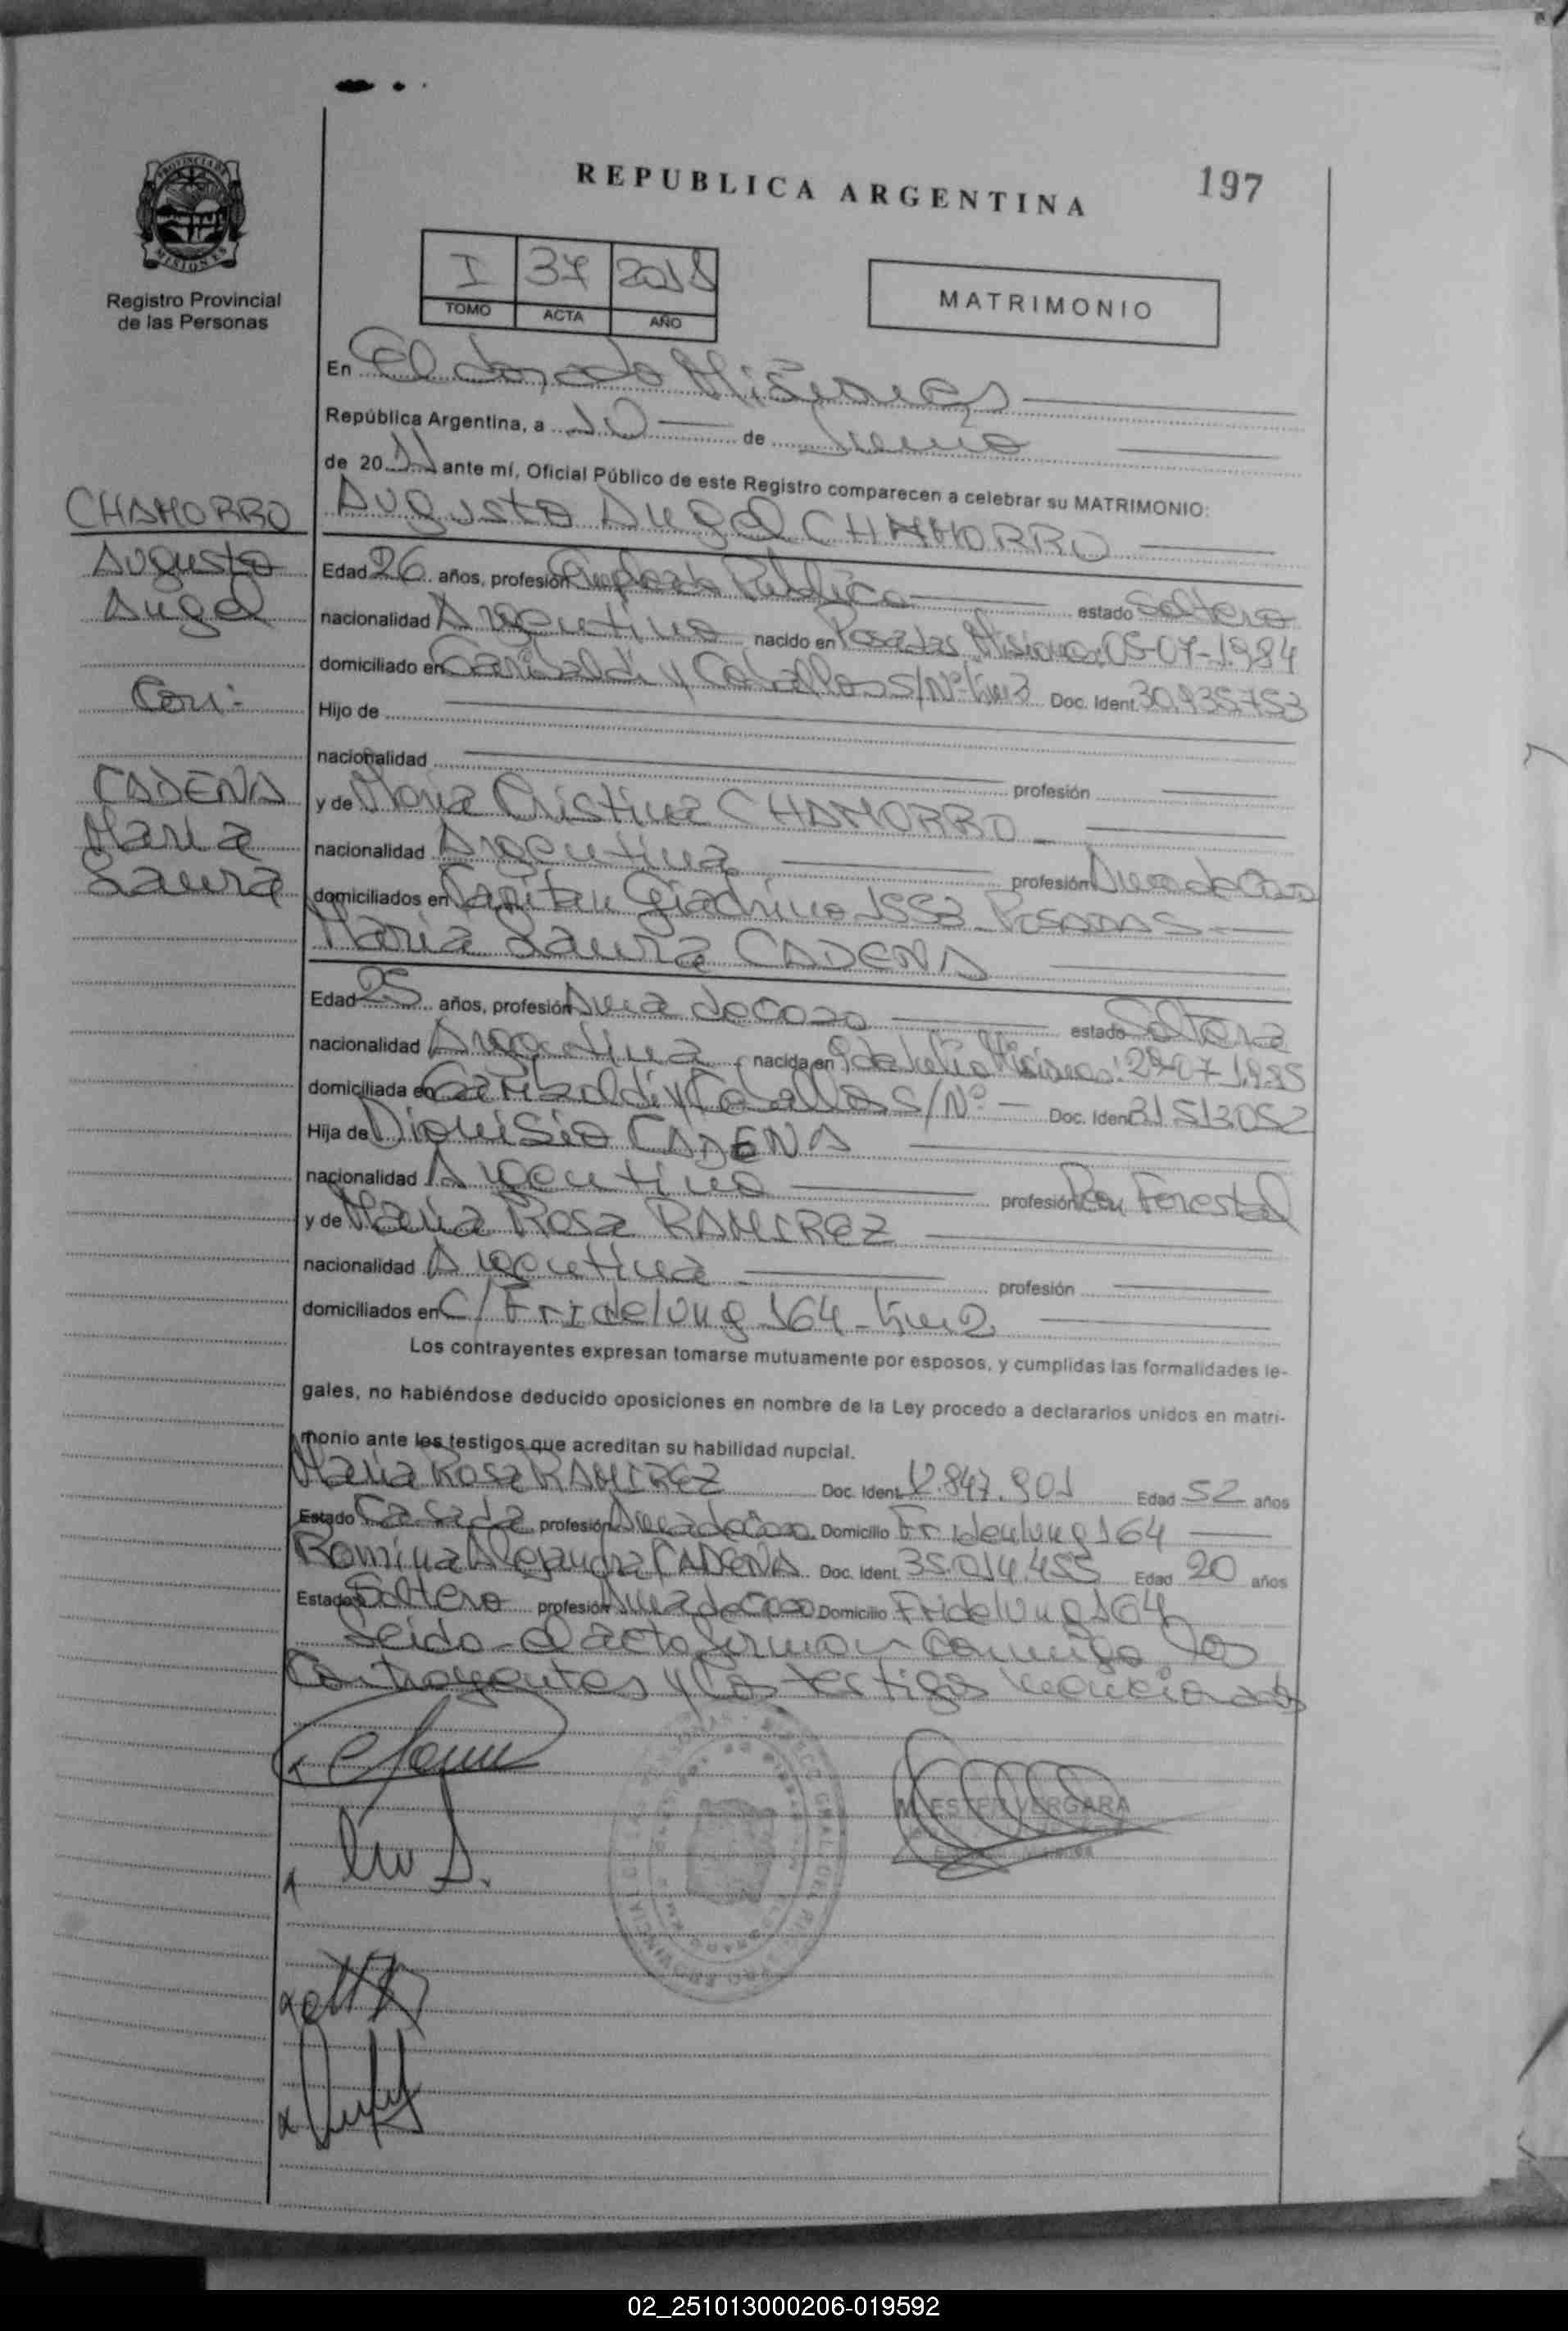 REPUBLICA ARGENTINA
197
PROVINCIA DE MISIONES
Registro Provincial
de las Personas
I 37 2011
TOMO ACTA AÑO
MATRIMONIO
En Eldorado Misiones
República Argentina, a 10 de Junio
de 2011 ante mí, Oficial Público de este Registro comparecen a celebrar su MATRIMONIO:
CHAMORRO
Augusto
Angel
Con:
CADENA
Maria
Laura
Augusto Angel CHAMORRO
Edad 26 años, profesión Empleado Publico estado Soltero
nacionalidad Argentino nacido en Posadas Misiones 05-07-1984
domiciliado en Garibaldi y Ceballos S/Nº-km3 Doc. Ident. 30.935.753
Hijo de
nacionalidad profesión
y de Maria Cristina CHAMORRO
nacionalidad Argentina profesión Ama de Casa
domiciliados en Capitan Giachino 1553 - POSADAS -
Maria Laura CADENA
Edad 25 años, profesión Ama de Casa estado Soltera
nacionalidad Argentina nacida en Misiones 29-07-1985
domiciliada en Garibaldi y Ceballos S/Nº - Doc. Ident. 31.513.052
Hija de Dionisio CADENA
nacionalidad Argentino profesión Peon Forestal
y de Maria Rosa RAMIREZ
nacionalidad Argentina profesión
domiciliados en C/ 164 - km 2
Los contrayentes expresan tomarse mutuamente por esposos, y cumplidas las formalidades le-
gales, no habiéndose deducido oposiciones en nombre de la Ley procedo a declararlos unidos en matri-
monio ante los testigos que acreditan su habilidad nupcial.
Maria Rosa RAMIREZ Doc. Ident. 12.847.901 Edad 52 años
Estado Casada profesión Ama de Casa Domicilio 164
Romina Alejandra CADENA Doc. Ident. 35.014.455 Edad 20 años
Estado Soltera profesión Ama de Casa Domicilio 164
Leido el acta firman conmigo los
Contrayentes y los testigos mencionados
M. ESTER VERGARA
02_251013000206-019592